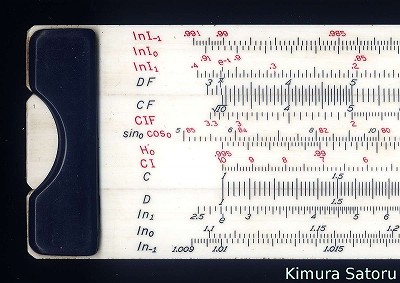 lnI-1 .991 .99 .985
lnI0 .91 .9 .85
lnI1 .4 e-1 .3 .2
DF 3 π 4 5
CF √10 4 5
CIF 3.3 3 2
sin0 cos0 5 85 6 84 82 10 80
H'0 .995 .99
CI 10 9 8 7 6
C 1 1.5
D 1 1.5
ln1 2.5 e 3 4 5
ln0 1.1 1.15 1.2
ln-1 1.009 1.01 1.015
Kimura Satoru